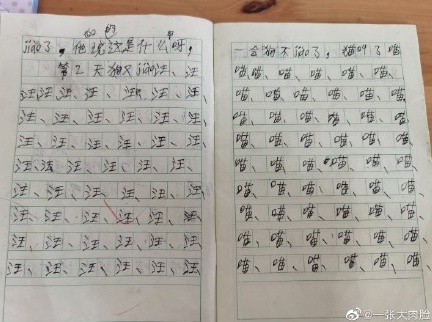 jiào了。他说这是什么呀,
第2天狗又jiào汪、汪、
汪汪、汪、汪、汪、汪、汪、
汪、汪、汪、汪、汪、汪、汪、
汪、汪、汪、汪、汪、汪、汪、
汪、汪、汪、汪、汪、汪、汪、
汪、汪、汪、汪、汪、汪、汪、
汪、汪、汪、汪、汪、汪、
汪、汪、汪、汪、汪、汪、
汪、汪、汪、汪、汪、汪、
汪、汪、汪、汪、汪、汪、
一会狗不jiào了,猫叫了喵
喵喵、喵、喵、喵、喵、
喵、喵、喵、喵、喵、喵、
喵、喵、喵、喵、喵、喵、
喵、喵、喵、喵、喵、喵、
喵、喵、喵、喵、喵、喵、
喵、喵、喵、喵、喵、喵、
喵、喵、喵、喵、喵、喵、
喵、喵、喵、喵、喵、喵、
喵、喵、喵、喵、喵、喵、
@一张大肉脸